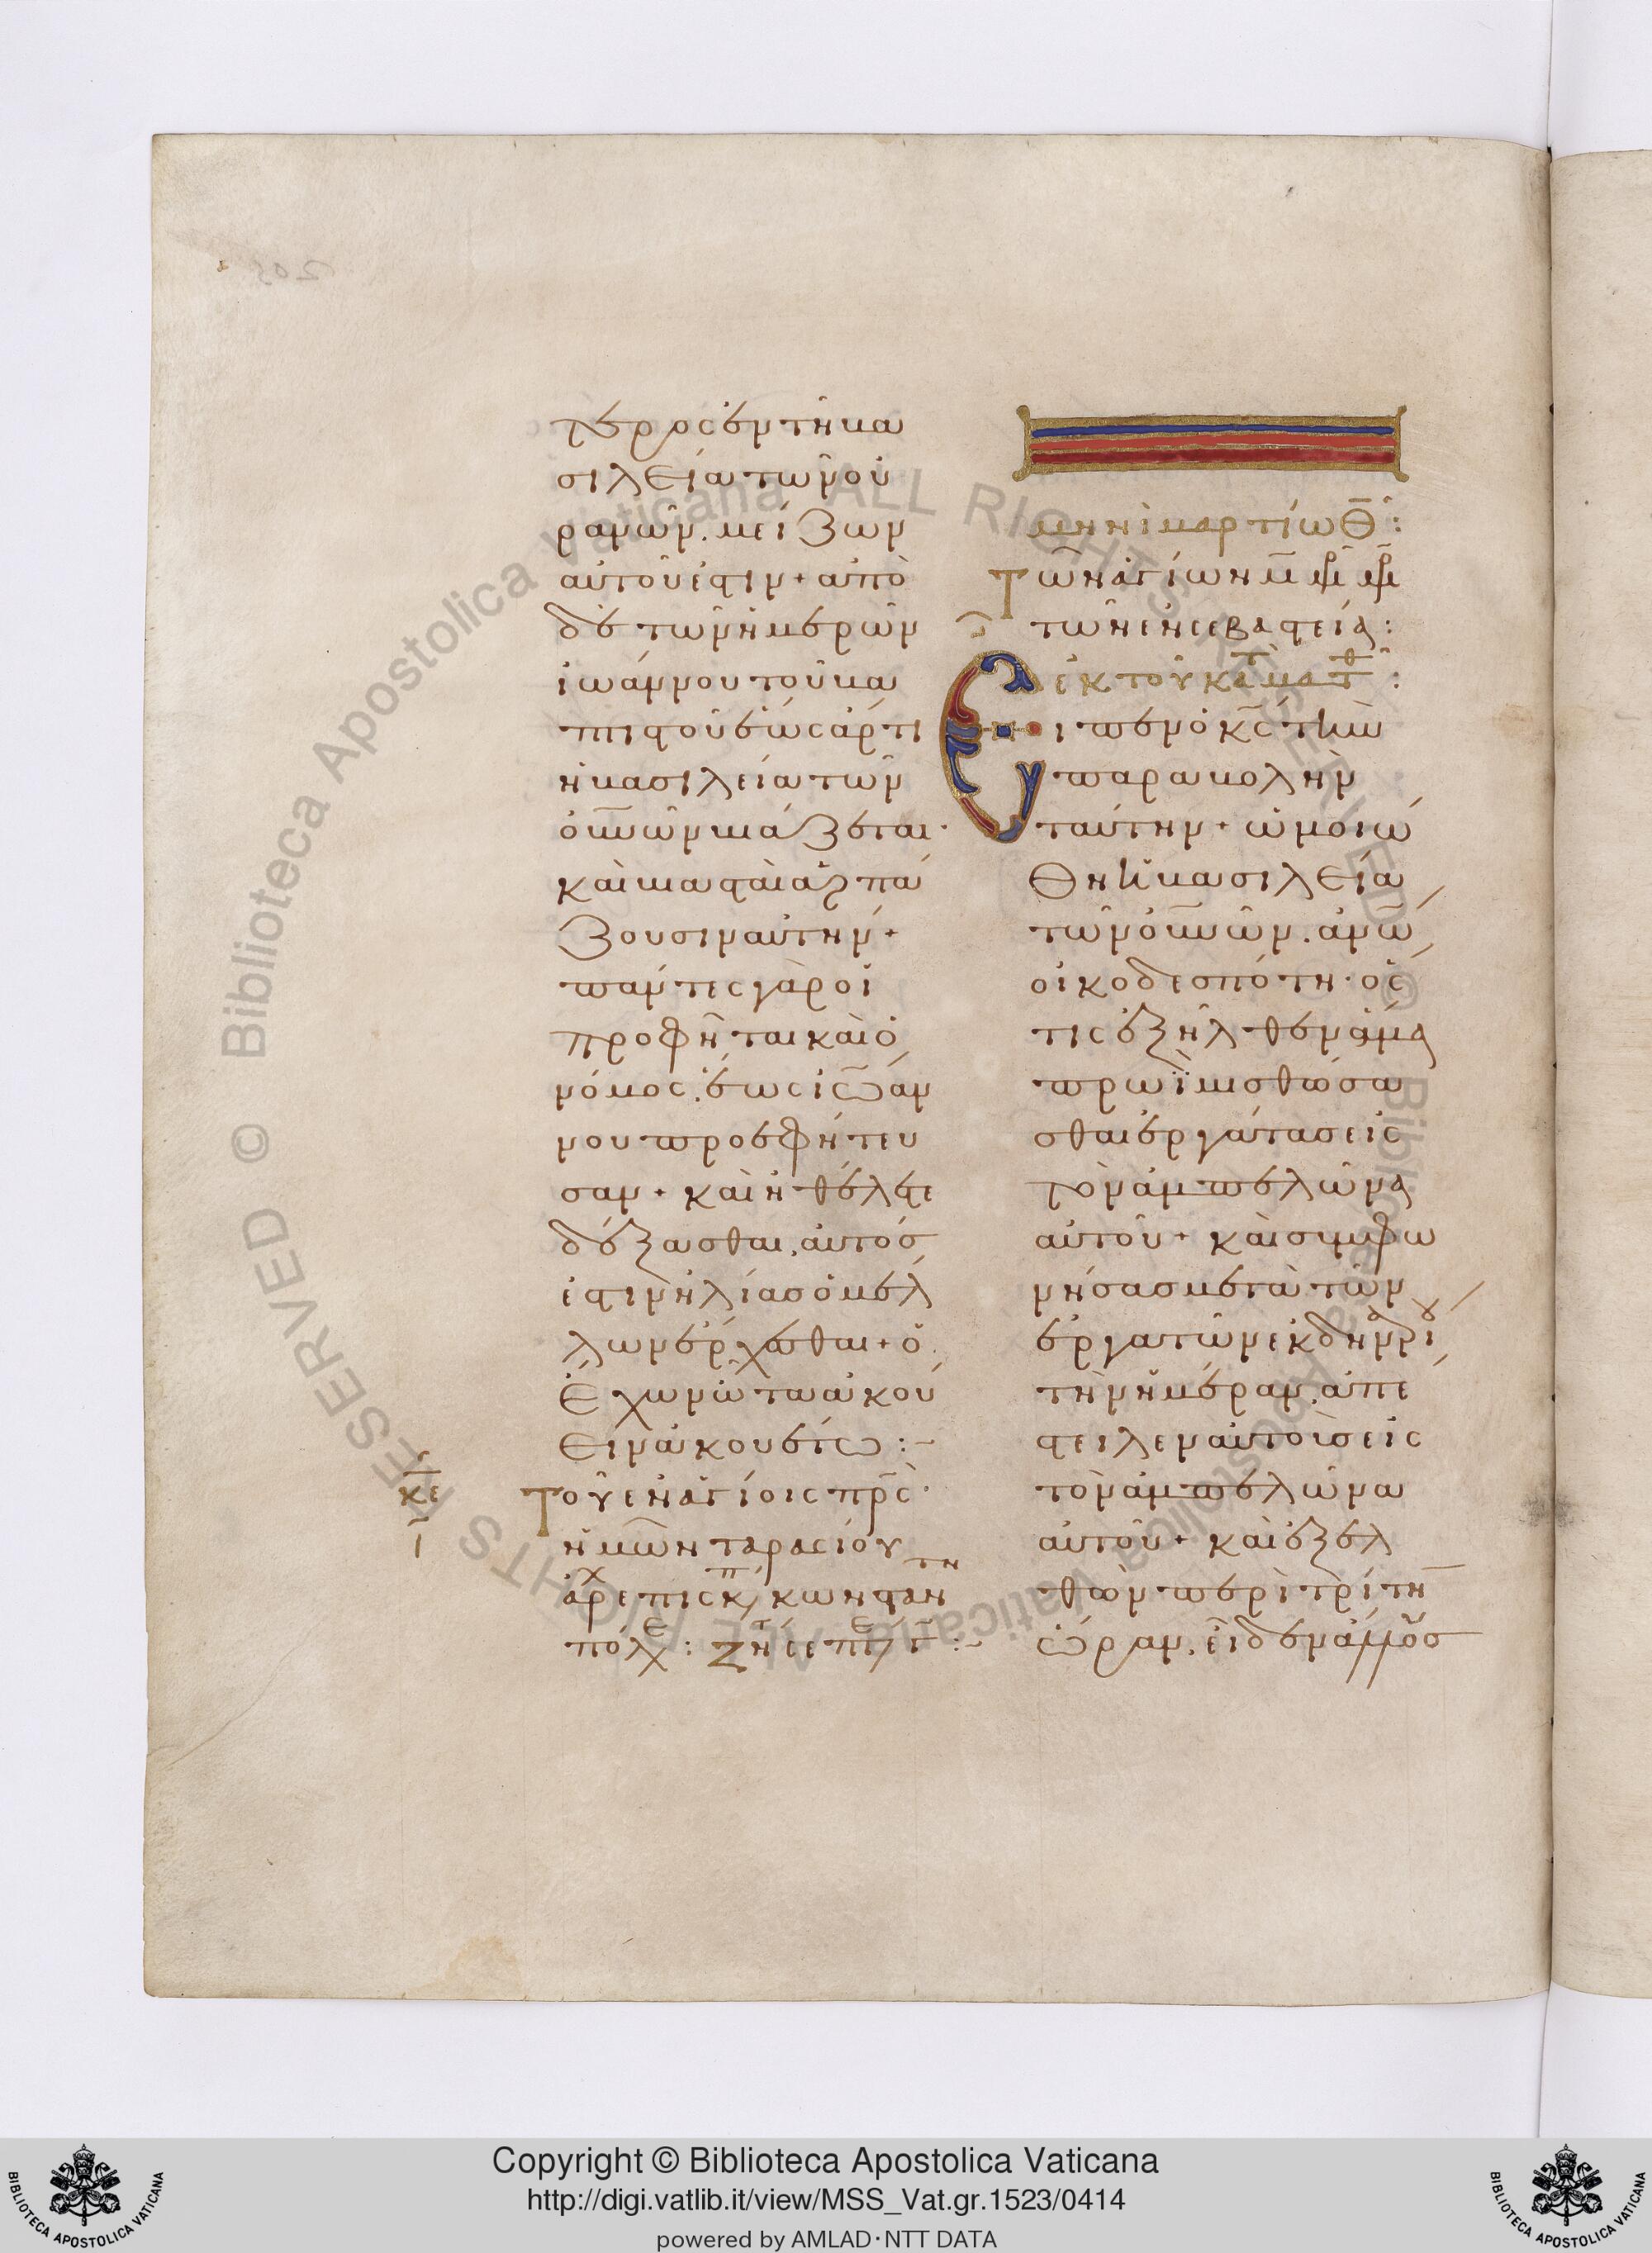 τερος ἐν τῆ βα
σιλεία τῶν οὐ
ρανῶν. μείζων
αὐτοῦ ἐστιν + ἀπὸ
δὲ τῶν ἡμερῶν
ἰωάννου τοῦ βα
πτιστοῦ ἕως ἄρτι
ἡ βασιλεία τῶν
οὐνῶν βιάζεται·
καὶ βιασταὶ ἁρπά
ζουσιν αὐτήν +
πάντες γὰρ οἱ
προφῆται καὶ ὁ
νόμος. ἕως ἰωάν
νου προεφήτευ
σαν + καὶ εἰ θέλετε
δέξασθαι. αὐτός
ἐστιν ἠλίας ὁ μέλ
λων ἔρχεσθαι + ὁ
ἔχων ὦτα ἀκού
ειν ἀκουέτω :~
Τοῦ ἐν ἁγίοις πρς
ἡμῶν ταρασίου
ἀρχεπισκ κωνσταν
πόλ : ζή
κε
μηνὶ μαρτίω θ :
Τῶν ἁγίων μ μρ μρ
τῶν ἐν σεβαστεία :
ἐκ τοῦ κατὰ ματθ :
Εἶπεν ὁ κς τὴν
παραβολὴν
ταύτην + ὡμοιώ
θη ἡ βασιλεία
τῶν οὐνῶν. ἀνῶ
οἰκοδεσπότη· ὅσ
τις ἐξῆλθεν ἅμα
πρωῒ μισθώσα
σθαι ἐργάτας εἰς
τὸν ἀμπελῶνα
αὐτοῦ + καὶ συμφω
νήσας μετὰ τῶν
ἐργατῶν ἐκ δηναρίου
τὴν ἡμέραν. ἀπέ
στειλεν αὐτοὺς εἰς
τὸν ἀμπελῶνα
αὐτοῦ + καὶ ἐξελ
θὼν περὶ τρίτην
ὥραν. εἶδεν ἄλλους
Copyright © Biblioteca Apostolica Vaticana
http://digi.vatlib.it/view/MSS_Vat.gr.1523/0414
powered by AMLAD·NTT DATA
BIBLIOTECA APOSTOLICA VATICANA
BIBLIOTECA APOSTOLICA VATICANA